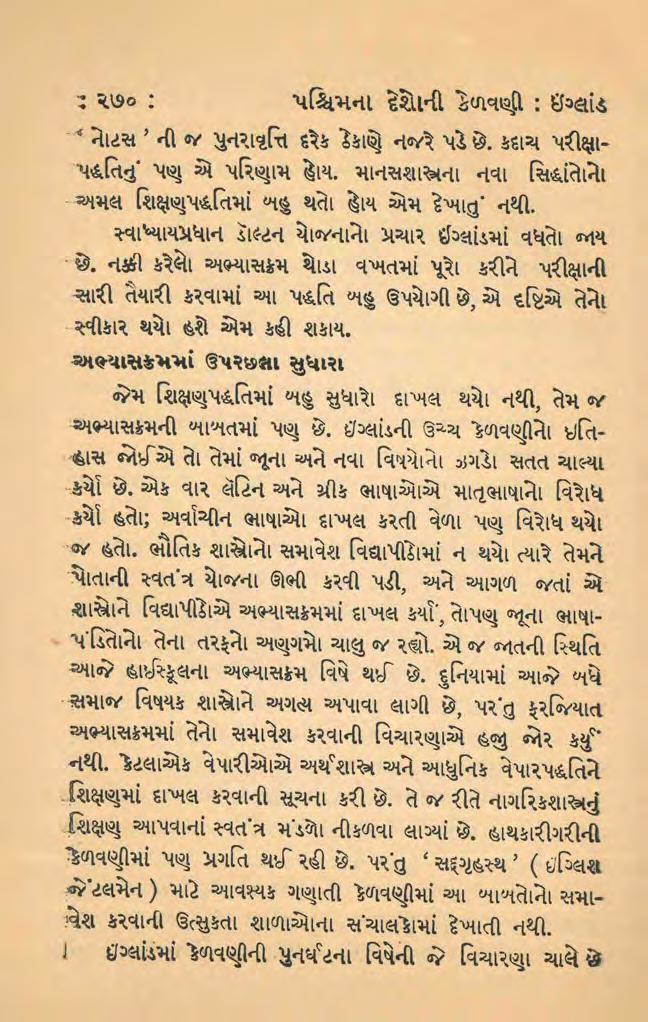 : ૨૭૦ : પશ્ચિમના દેશોની કેળવણી : ઇંગ્લાંડ
‘ નોટસ ’ ની જ પુનરાવૃત્તિ દરેક ઠેકાણે નજરે પડે છે. કદાચ પરીક્ષા-
પદ્ધતિનું પણ એ પરિણામ હોય. માનસશાસ્ત્રના નવા સિદ્ધાંતોનો
અમલ શિક્ષણપદ્ધતિમાં બહુ થતો હોય એમ દેખાતું નથી.
સ્વાધ્યાયપ્રધાન ડૉલ્ટન યોજનાનો પ્રચાર ઇંગ્લાંડમાં વધતો જાય
છે. નક્કી કરેલો અભ્યાસક્રમ થોડા વખતમાં પૂરો કરીને પરીક્ષાની
સારી તૈયારી કરવામાં આ પદ્ધતિ બહુ ઉપયોગી છે, એ દૃષ્ટિએ તેનો
સ્વીકાર થયો હશે એમ કહી શકાય.
અભ્યાસક્રમમાં ઉપરછલ્લા સુધારા
જેમ શિક્ષણપદ્ધતિમાં બહુ સુધારો દાખલ થયો નથી, તેમ જ
અભ્યાસક્રમની બાબતમાં પણ છે. ઇંગ્લાંડની ઉચ્ચ કેળવણીનો ઇતિ-
હાસ જોઈએ તો તેમાં જૂના અને નવા વિષયોનો ઝગડો સતત ચાલ્યા
કર્યો છે. એક વાર લૅટિન અને ગ્રીક ભાષાઓએ માતૃભાષાનો વિરોધ
કર્યો હતો; અર્વાચીન ભાષાઓ દાખલ કરતી વેળા પણ વિરોધ થયો
જ હતો. ભૌતિક શાસ્ત્રોનો સમાવેશ વિદ્યાપીઠોમાં ન થયો ત્યારે તેમને
પોતાની સ્વતંત્ર યોજના ઊભી કરવી પડી, અને આગળ જતાં એ
શાસ્ત્રોને વિદ્યાપીઠોએ અભ્યાસક્રમમાં દાખલ કર્યાં, તોપણ જૂના ભાષા-
પંડિતોનો તેના તરફનો અણગમો ચાલુ જ રહ્યો. એ જ જાતની સ્થિતિ
આજે હાઈસ્કૂલના અભ્યાસક્રમ વિષે થઈ છે. દુનિયામાં આજે બધે
સમાજ વિષયક શાસ્ત્રોને અગત્ય અપાવા લાગી છે, પરંતુ ફરજિયાત
અભ્યાસક્રમમાં તેનો સમાવેશ કરવાની વિચારણાએ હજુ જોર કર્યું
નથી. કેટલાએક વેપારીઓએ અર્થશાસ્ત્ર અને આધુનિક વેપારપદ્ધતિને
શિક્ષણમાં દાખલ કરવાની સૂચના કરી છે. તે જ રીતે નાગરિકશાસ્ત્રનું
શિક્ષણ આપવાનાં સ્વતંત્ર મંડળો નીકળવા લાગ્યાં છે. હાથકારીગરીની
કેળવણીમાં પણ પ્રગતિ થઈ રહી છે. પરંતુ ‘ સદ્દગૃહસ્થ ’ ( ઇંગ્લિશ
જેંટલમેન ) માટે આવશ્યક ગણાતી કેળવણીમાં આ બાબતોનો સમા-
વેશ કરવાની ઉત્સુકતા શાળાઓના સંચાલકોમાં દેખાતી નથી.
ઇંગ્લાંડમાં કેળવણીની પુનર્ઘટના વિષેની જે વિચારણા ચાલે છે